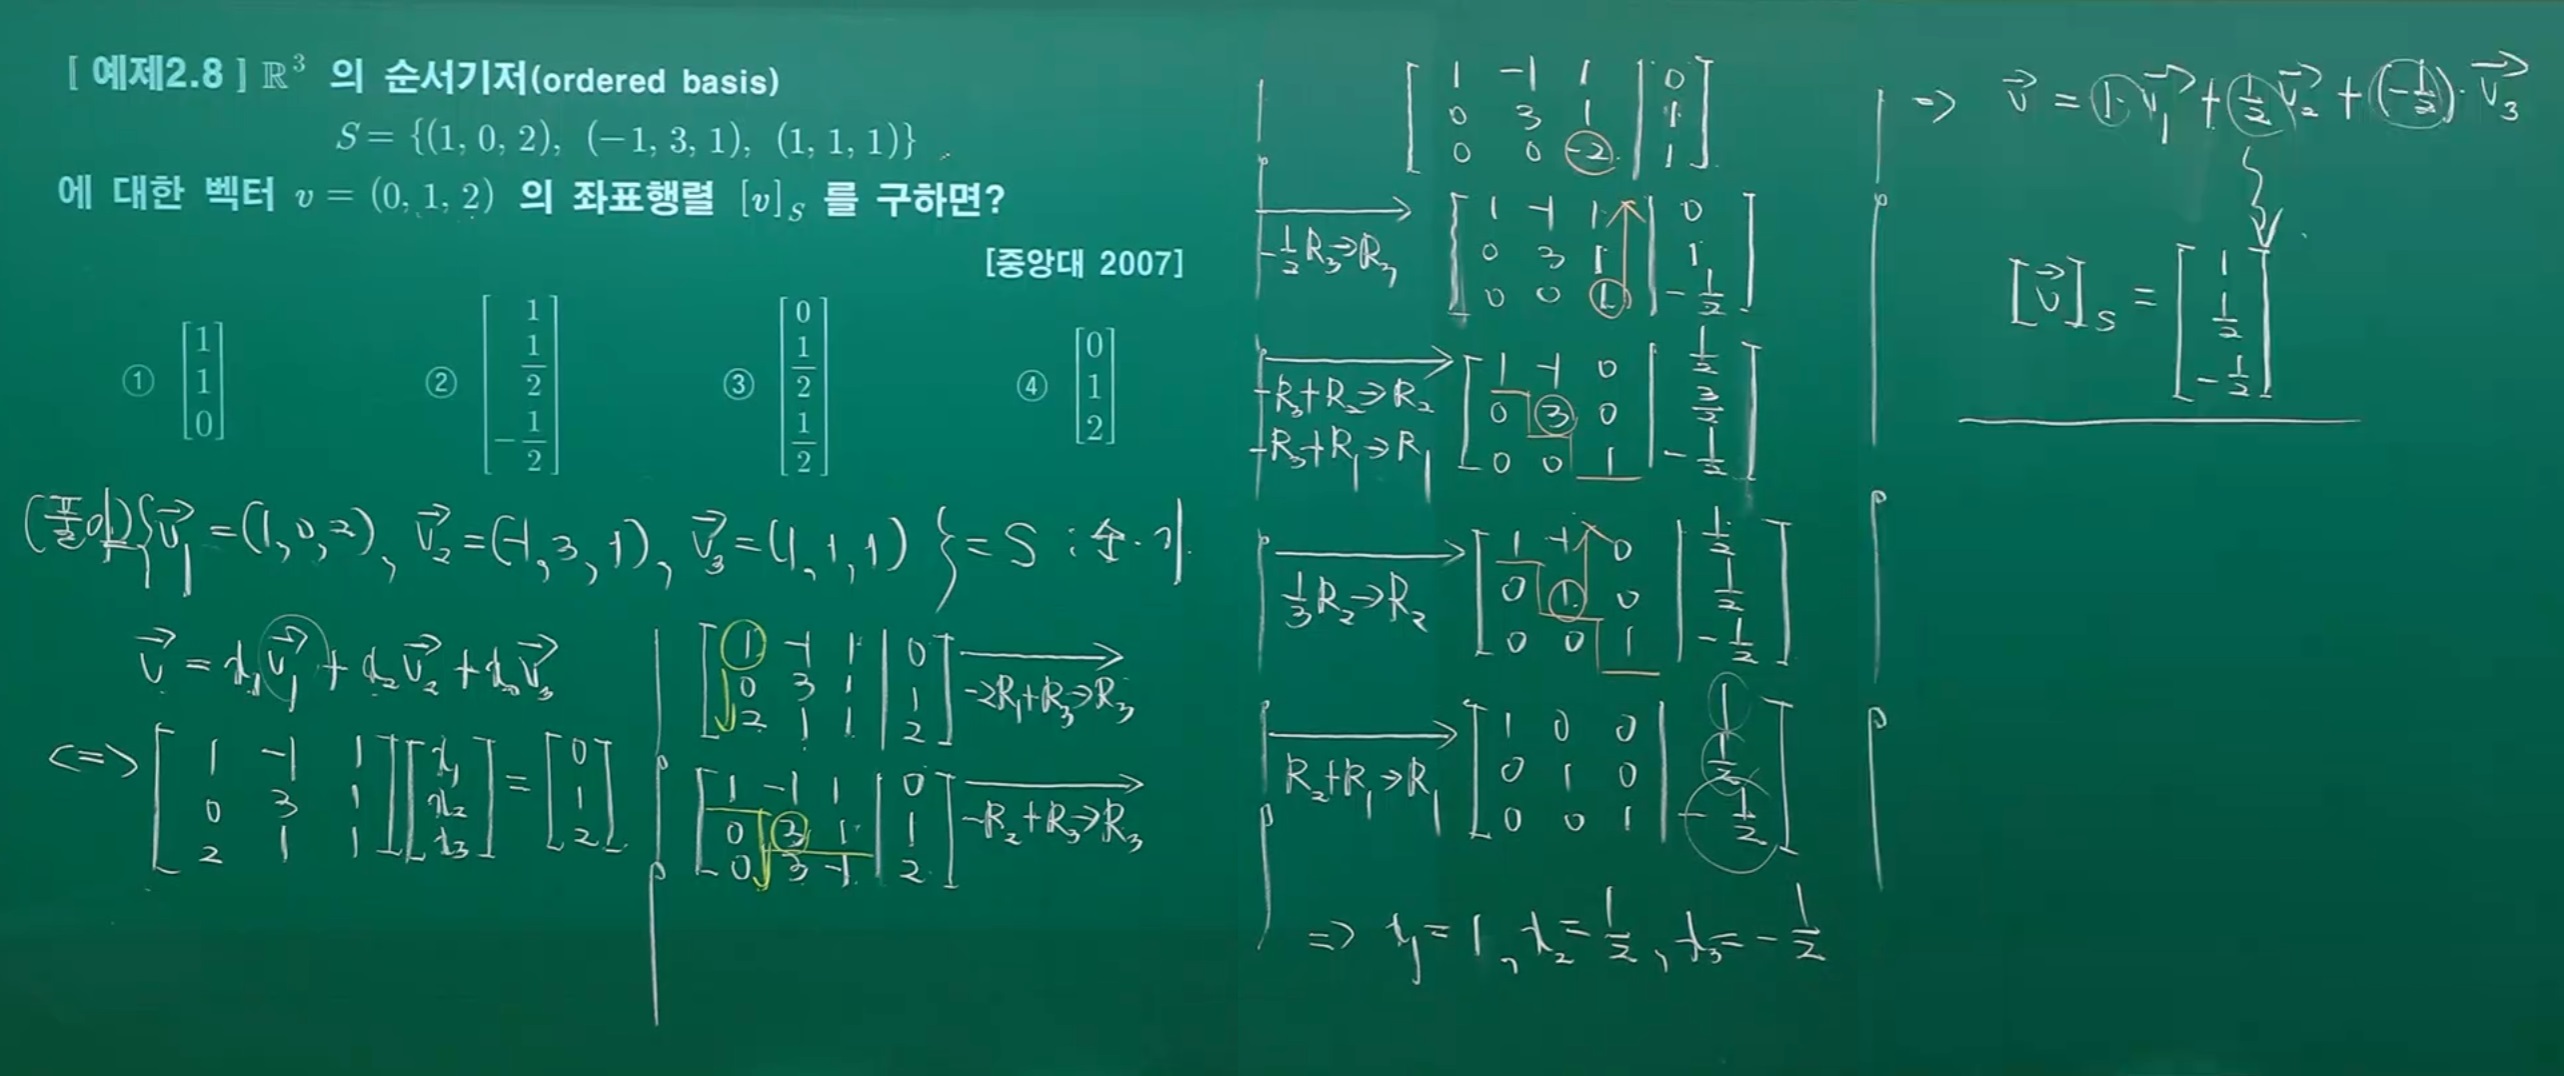 [ 예제2.8 ] ℝ³ 의 순서기저(ordered basis)
S = {(1, 0, 2), (−1, 3, 1), (1, 1, 1)}
에 대한 벡터 v = (0, 1, 2) 의 좌표행렬 [v]_S 를 구하면?
[중앙대 2007]
① [1 1 0] ② [1 1/2 −1/2] ③ [0 1/2 1/2] ④ [0 1 2]
(풀이) {v⃗₁ = (1, 0, 2), v⃗₂ = (−1, 3, 1), v⃗₃ = (1, 1, 1)} = S : 순·기
v⃗ = x₁v⃗₁ + x₂v⃗₂ + x₃v⃗₃
<=> [1 −1 1
0 3 1
2 1 1] [x₁ x₂ x₃] = [0 1 2]
[1 −1 1 | 0
0 3 1 | 1
2 1 1 | 2]
−2R₁+R₃→R₃
[1 −1 1 | 0
0 3 1 | 1
0 3 −1 | 2]
−R₂+R₃→R₃
[1 −1 1 | 0
0 3 1 | 1
0 0 −2 | 1]
−1/2 R₃→R₃
[1 −1 1 | 0
0 3 1 | 1
0 0 1 | −1/2]
−R₃+R₂→R₂
−R₃+R₁→R₁
[1 −1 0 | 1/2
0 3 0 | 3/2
0 0 1 | −1/2]
1/3 R₂→R₂
[1 −1 0 | 1/2
0 1 0 | 1/2
0 0 1 | −1/2]
R₂+R₁→R₁
[1 0 0 | 1
0 1 0 | 1/2
0 0 1 | −1/2]
=> x₁ = 1, x₂ = 1/2, x₃ = −1/2
=> v⃗ = 1·v⃗₁ + 1/2 v⃗₂ + (−1/2)·v⃗₃
[v⃗]_S = [1 1/2 −1/2]